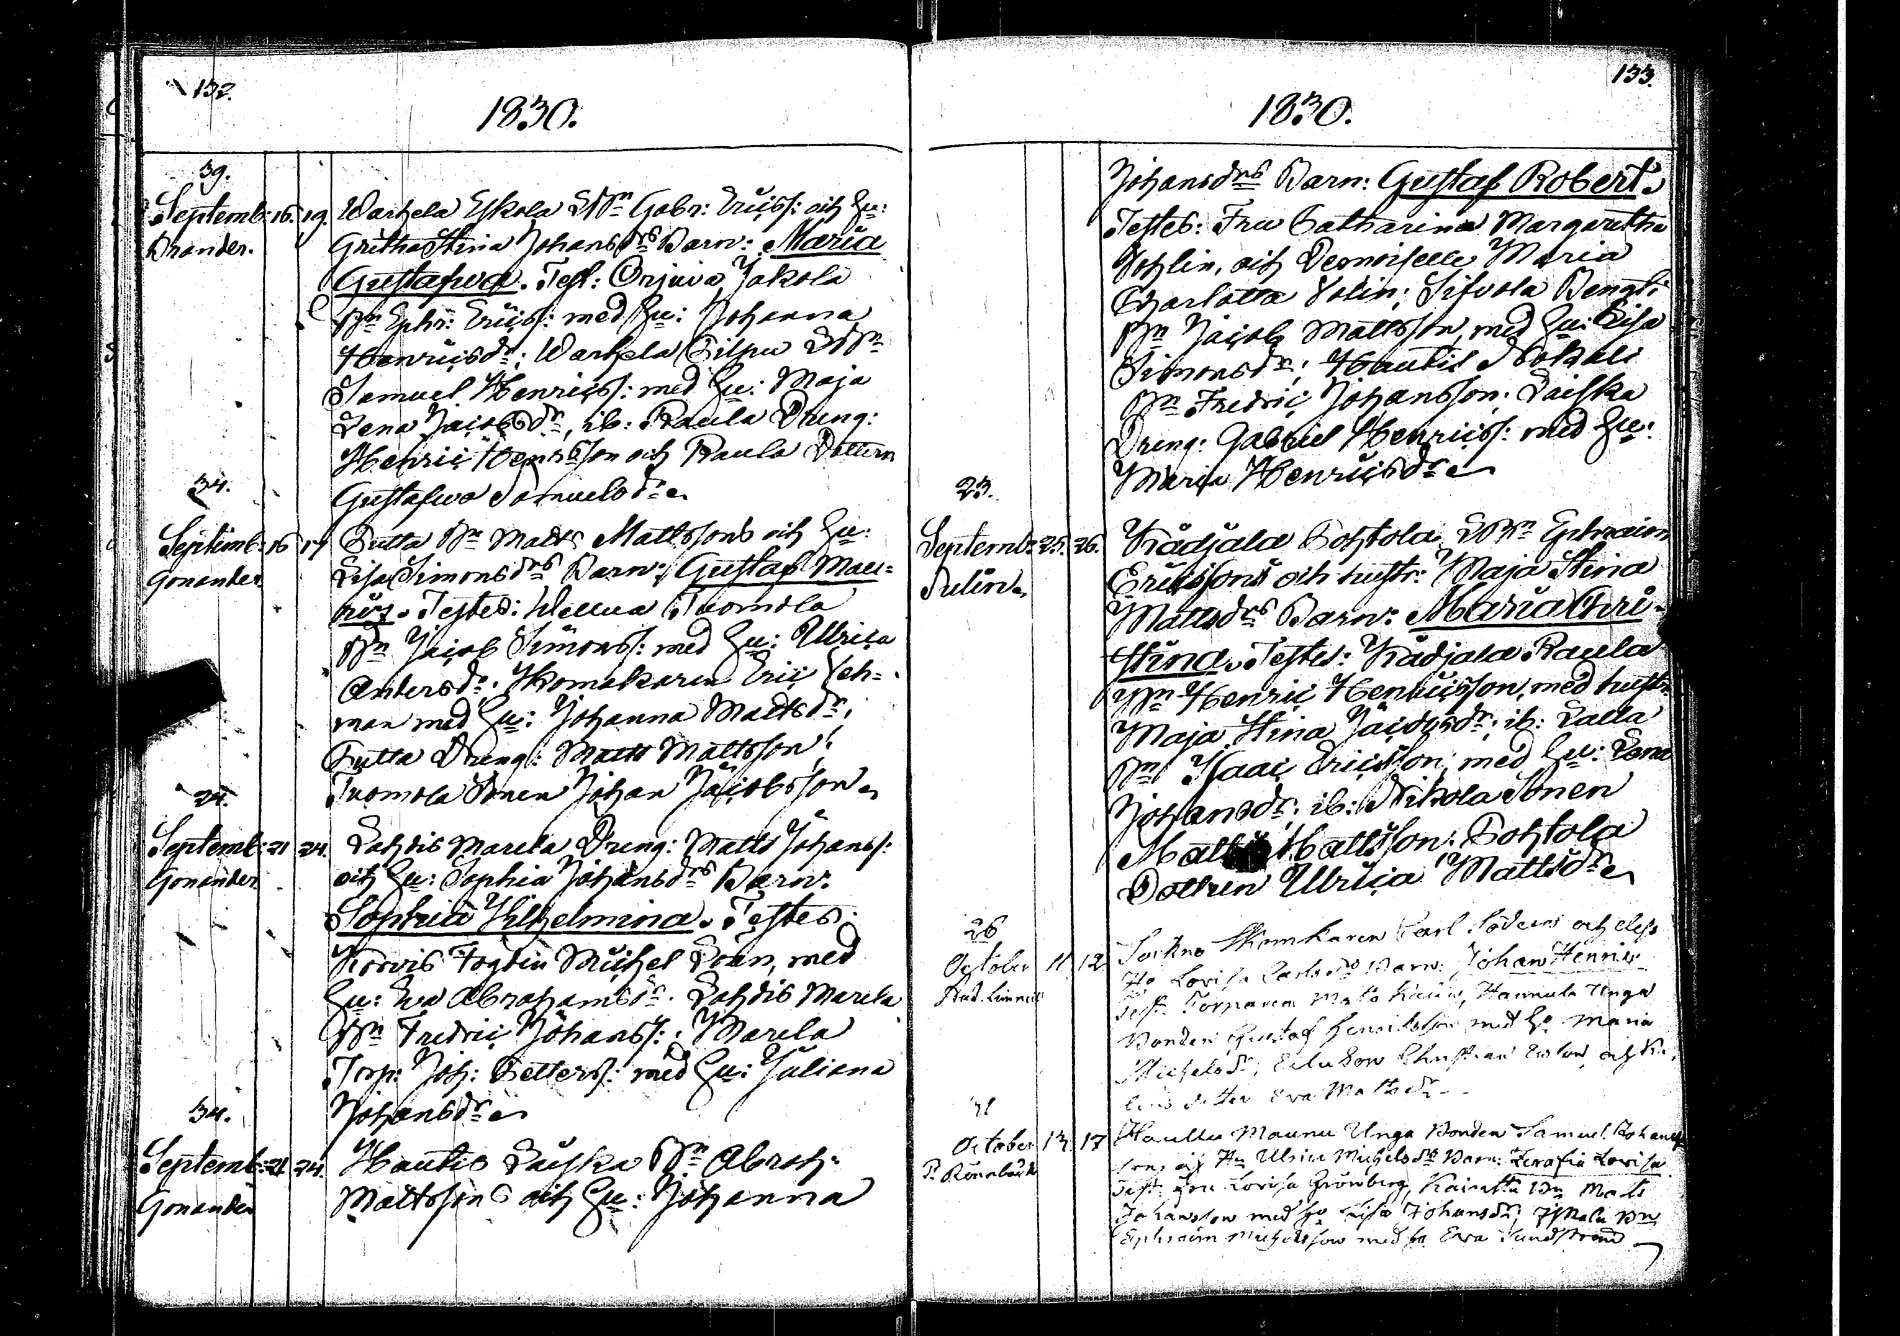 132.
1830.
39.
Septemb: 16. 19. Warhela Eskola Gabr: Ericss: och Hu:
Brander. Gretha Stina Johansdrs Barn: Maria
Gustafwa. Test: Orjuva Jakola
Bn Ephr: Ericss: med Hu: Johanna
Henricsdr; Warhela Pilpu
Samuel Henricss: med Hu: Maja
Lena Jacobsdr, ib: Raula Dreng:
Henric Henricsson och Raula Dottern
Gustafwa Samuelsdr.
34.
Septemb: 16 17 Putta Bn Matts Mattssons och Hu:
Gonander. Lisa Simonsdrs Barn: Gustaf Mau=
ritz. Testes: Tuomola
Bn Jacob Simonss: med Hu: Ulrica
Andersdr. Skomakaren Eric Leh=
man med Hu: Johanna Mattsdr;
Putta Dreng: Matts Mattsson;
Tuomola Sonen Johan Jacobsson.
24.
Septemb: 21 24. Lahdis Marela Dreng: Matts Johanss:
Gonander och Hu: Sophia Johansdrs Barn:
Sophia Wilhelmina. Testes:
Korvis Fogden Michel Loan, med
Hu: Eva Abrahamsdr. Lahdis Marela
Bn Fredric Johanss: Marela
Torp: Joh: Petterss: med Hu: Juliana
Johansdr.
34.
Septemb: 21 24. Hautis Laiska Bn Abrah:
Gonander Mattssons och Hu: Johanna
133.
1830.
Johansdrs Barn: Gustaf Robert.
Testes: Fru Catharina Margaretha
och Demoiselle Maria
Charlotta Polin; Sifvola Bengt:
Bn Jacob Mattsson, med Hu: Lisa
Simonsdr; Hautis
Bn Fredric Johansson; Laiska
Dreng: Gabriel Henricss: med Hu:
Maria Henricsdr.
23.
Septemb: 25. 26. Krädjälä Pohtola Ephraim
Pulin. Ericssons och hustr: Maja Stina
Mattsdrs Barn: Maria Chri=
stina. Testes: Krädjälä Raula
Bn Henric Henricsson, med hustr:
Maja Stina Jacobsdr; ib: Lalla
Bn Isaac Ericsson, med Hu: Lena
Johansdr; ib: Nikola Sonen
Matts Mattsson; Pohtola
Dottren Ulrica Mattsdr.
26
October 11 12 Skomkaren Carl
Lovisa Barn: Johan Henric
Torparen Mats Hannula Unga
Bonden Gustaf Henriksson med Ho Maria
Michelsdr; Christian
Eva Matsdr.
October 13 17 Haullu Maunu Unga Bonden Samuel Johans
sons och Hu Ulrica Michelsdrs Barn: Serafia Lovisa
Test: Fru Lovisa Grönberg, Bn Mats
Johansson med Ho Lisa Johansdr, Bn
Ephraim Michelsson med Ho Eva Sundström